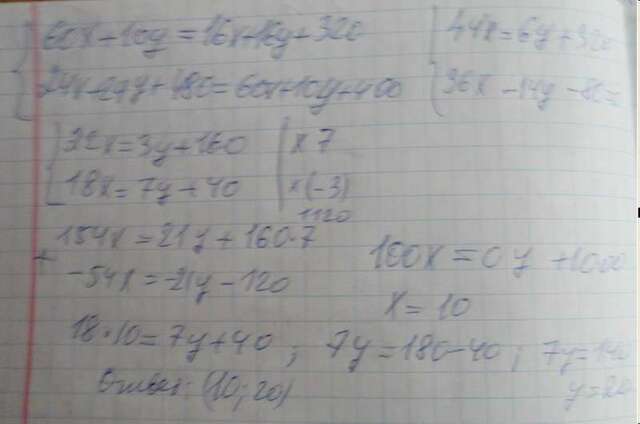 60x+10y=16x+16y+320
24x+24y+480=60x+10y+400
44x=6y+320
36x-14y-80=
22x=3y+160 | x7
18x=7y+40 | x(-3)
1120
154x=21y+160·7
+
-54x=-21y-120
100x=0y+1000
x=10
18·10=7y+40; 7y=180-40; 7y=140
y=20
Ответ: (10;20)